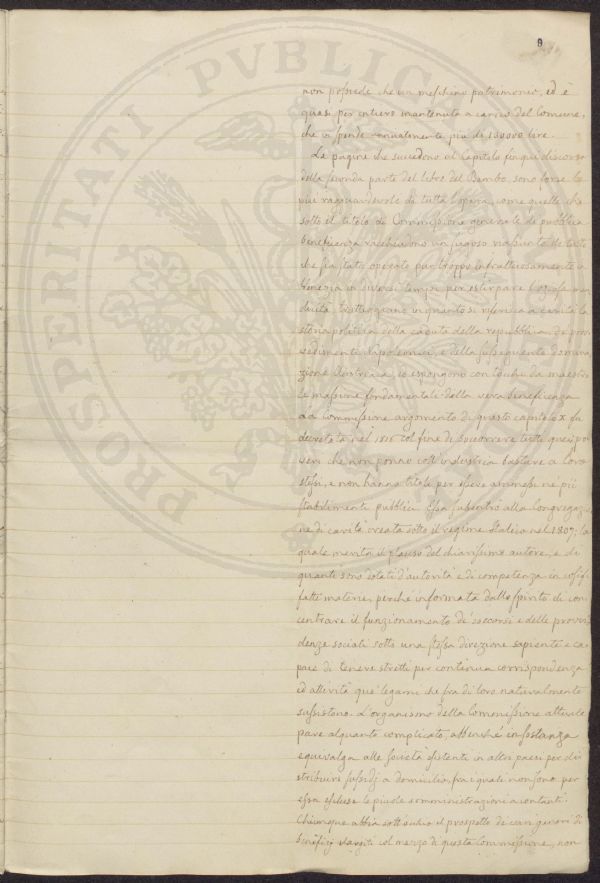 9
non possiede che un meschino patrimonio, ed è
quasi per intiero mantenuto a carico del Comune,
che vi spende annualmente più di 100000 lire.
Le pagine che succedono al Capitolo fin qui discorso
della seconda parte del libro del Bembo, sono forse le
più ragguardevoli di tutta l'opera, come quelle che
sotto il titolo di Commissione generale di pubblica
beneficenza racchiudono un sugoso riassunto di tutto
che sia stato operato pur troppo infruttuosamente in
Venezia in diversi tempi per estirpare l'oziosa men
dicità, tratteggiano in quanto si riferisce a carità la
storia politica della caduta della repubblica, dei prov
vedimenti napoleonici, e della susseguente domina
zione Austriaca, ed espongono con tocchi da maestro
le massime fondamentali della vera beneficenza
La Commissione argomento di questo capitolo X fu
decretata nel 1816 col fine di soccorrere tutti quei po
veri che non ponno coll'industria bastare a loro
stessi, e non hanno titoli per essere ammessi nei più
stabilimenti pubblici. Essa subentrò alla Congregazio
ne di carità creata sotto il regime Italico nel 1807, la
quale merita il plauso del chiarissimo autore, e di
quanti sono dotati d'autorità e di competenza in così
fatte materie, perché informata dallo spirito di con
centrare il funzionamento de' soccorsi e delle provvi
denze sociali sotto una stessa direzione sapiente e ca
pace di tenere stretti per continua corrispondenza
ed attività que' legami che fra di loro naturalmente
sussistono. L'organismo della Commissione attuale
pare alquanto complicato, abbenché in sostanza
equivalga alle società esistenti in altri paesi per di
stribuire sussidj a domicilio, fra i quali non sono per
essa escluse le piccole somministrazioni a contanti.
Chiunque abbia sott'occhio il prospetto dei vari generi di
benefizj elargiti col mezzo di questa Commissione, non
PROSPERITATI PVBLICAE